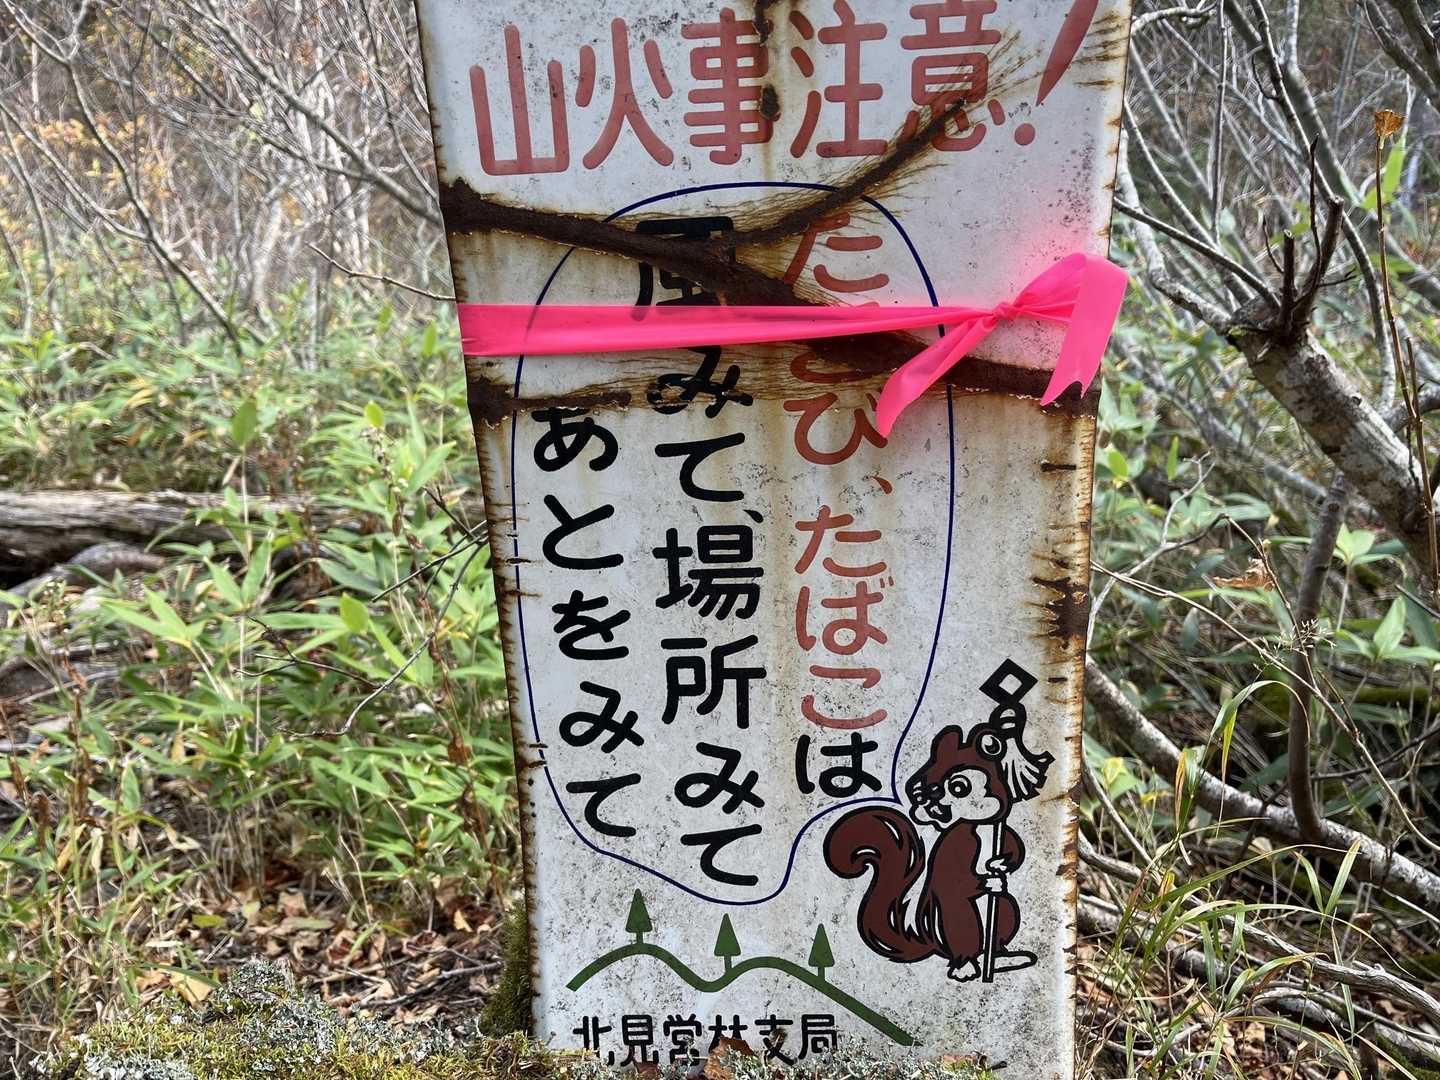 山火事注意!
たきび、たばこは
風みて、場所みて
あとをみて
北見営林支局